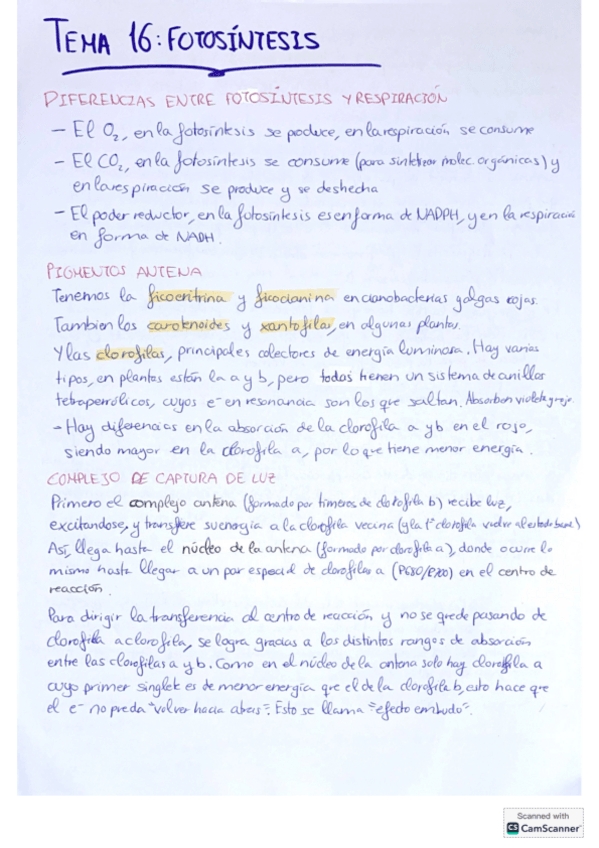 TEMA 16: FOTOSÍNTESIS
DIFERENCIAS ENTRE FOTOSÍNTESIS Y RESPIRACIÓN
- El O2, en la fotosíntesis se produce, en la respiración se consume
- El CO2, en la fotosíntesis se consume (para sintetizar molec. orgánicas) y
en la respiración se produce y se deshecha
- El poder reductor, en la fotosíntesis es en forma de NADPH, y en la respiración
en forma de NADH.
PIGMENTOS ANTENA
Tenemos la ficoeritrina y ficocianina en cianobacterias y algas rojas.
Tambien los carotenoides y xantofilas, en algunas plantas.
Y las clorofilas, principales colectores de energía luminosa. Hay varios
tipos, en plantas están la a y b, pero todas tienen un sistema de anillos
tetrapirrólicos, cuyos e- en resonancia son los que saltan. Absorben violeta y rojo
- Hay diferencias en la absorción de la clorofila a y b en el rojo,
siendo mayor en la clorofila a, por lo que tiene menor energía.
COMPLEJO DE CAPTURA DE LUZ
Primero el complejo antena (formado por trímeros de clorofila b) recibe luz,
excitandose, y transfiere su energía a la clorofila vecina (y la 1ª clorofila vuelve al estado basal)
Así, llega hasta el núcleo de la antena (formado por clorofila a), donde ocurre lo
mismo hasta llegar a un par especial de clorofilas a (P680/P700) en el centro de
reacción.
Para dirigir la transferencia al centro de reacción y no se quede pasando de
clorofila a clorofila, se logra gracias a los distintos rangos de absorción
entre las clorofilas a y b. Como en el núcleo de la antena solo hay clorofila a
cuyo primer singlete es de menor energía que el de la clorofila b, esto hace que
el e- no pueda "volver hacia atrás". Esto se llama "efecto embudo".
Scanned with
CS CamScanner